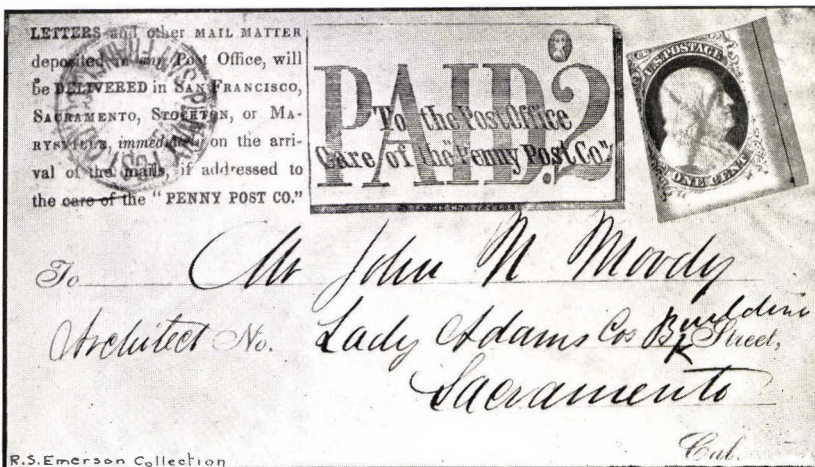 LETTERS and other MAIL MATTER
deposited in any Post Office, will
be DELIVERED in SAN FRANCISCO,
SACRAMENTO, STOCKTON, or MA-
RYSVILLE, immediately on the arri-
val of the mails, if addressed to
the care of the "PENNY POST CO."
PAID.2
To the Post Office
Care of the "Penny Post Co."
U.S. POSTAGE
ONE CENT
To Mr John N Moody
Architect No. Lady Adams Cos Building
Street,
Sacramento
Cal.
R.S. Emerson Collection